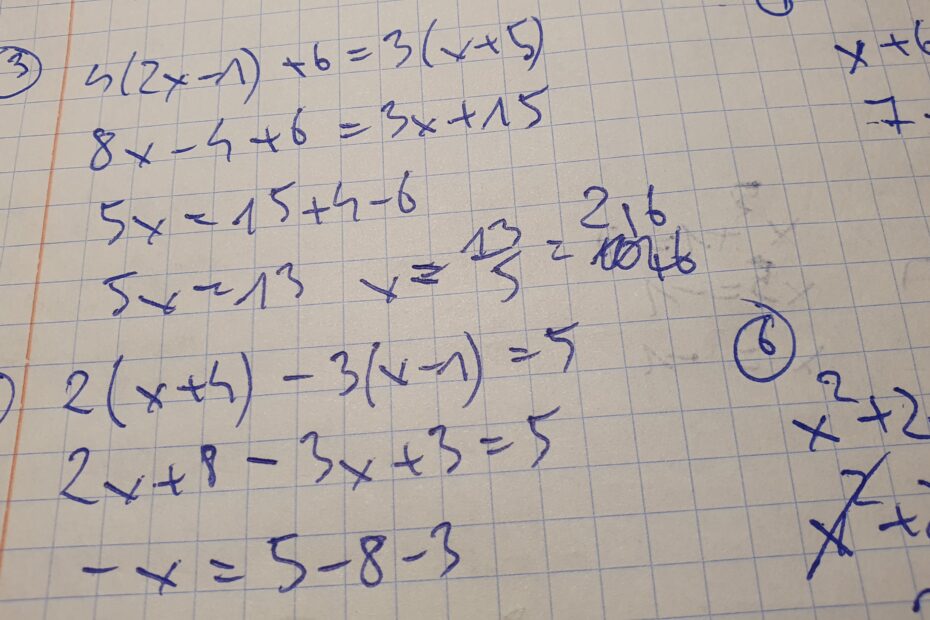 3 4(2x-1) +6 = 3(x+5)
8x-4+6 = 3x+15
5x = 15+4-6
5x = 13 x = 13/5 = 2,6
2(x+4) - 3(x-1) = 5
2x+8 - 3x+3 = 5
-x = 5-8-3
x+6
7
6
x²+2
x²+